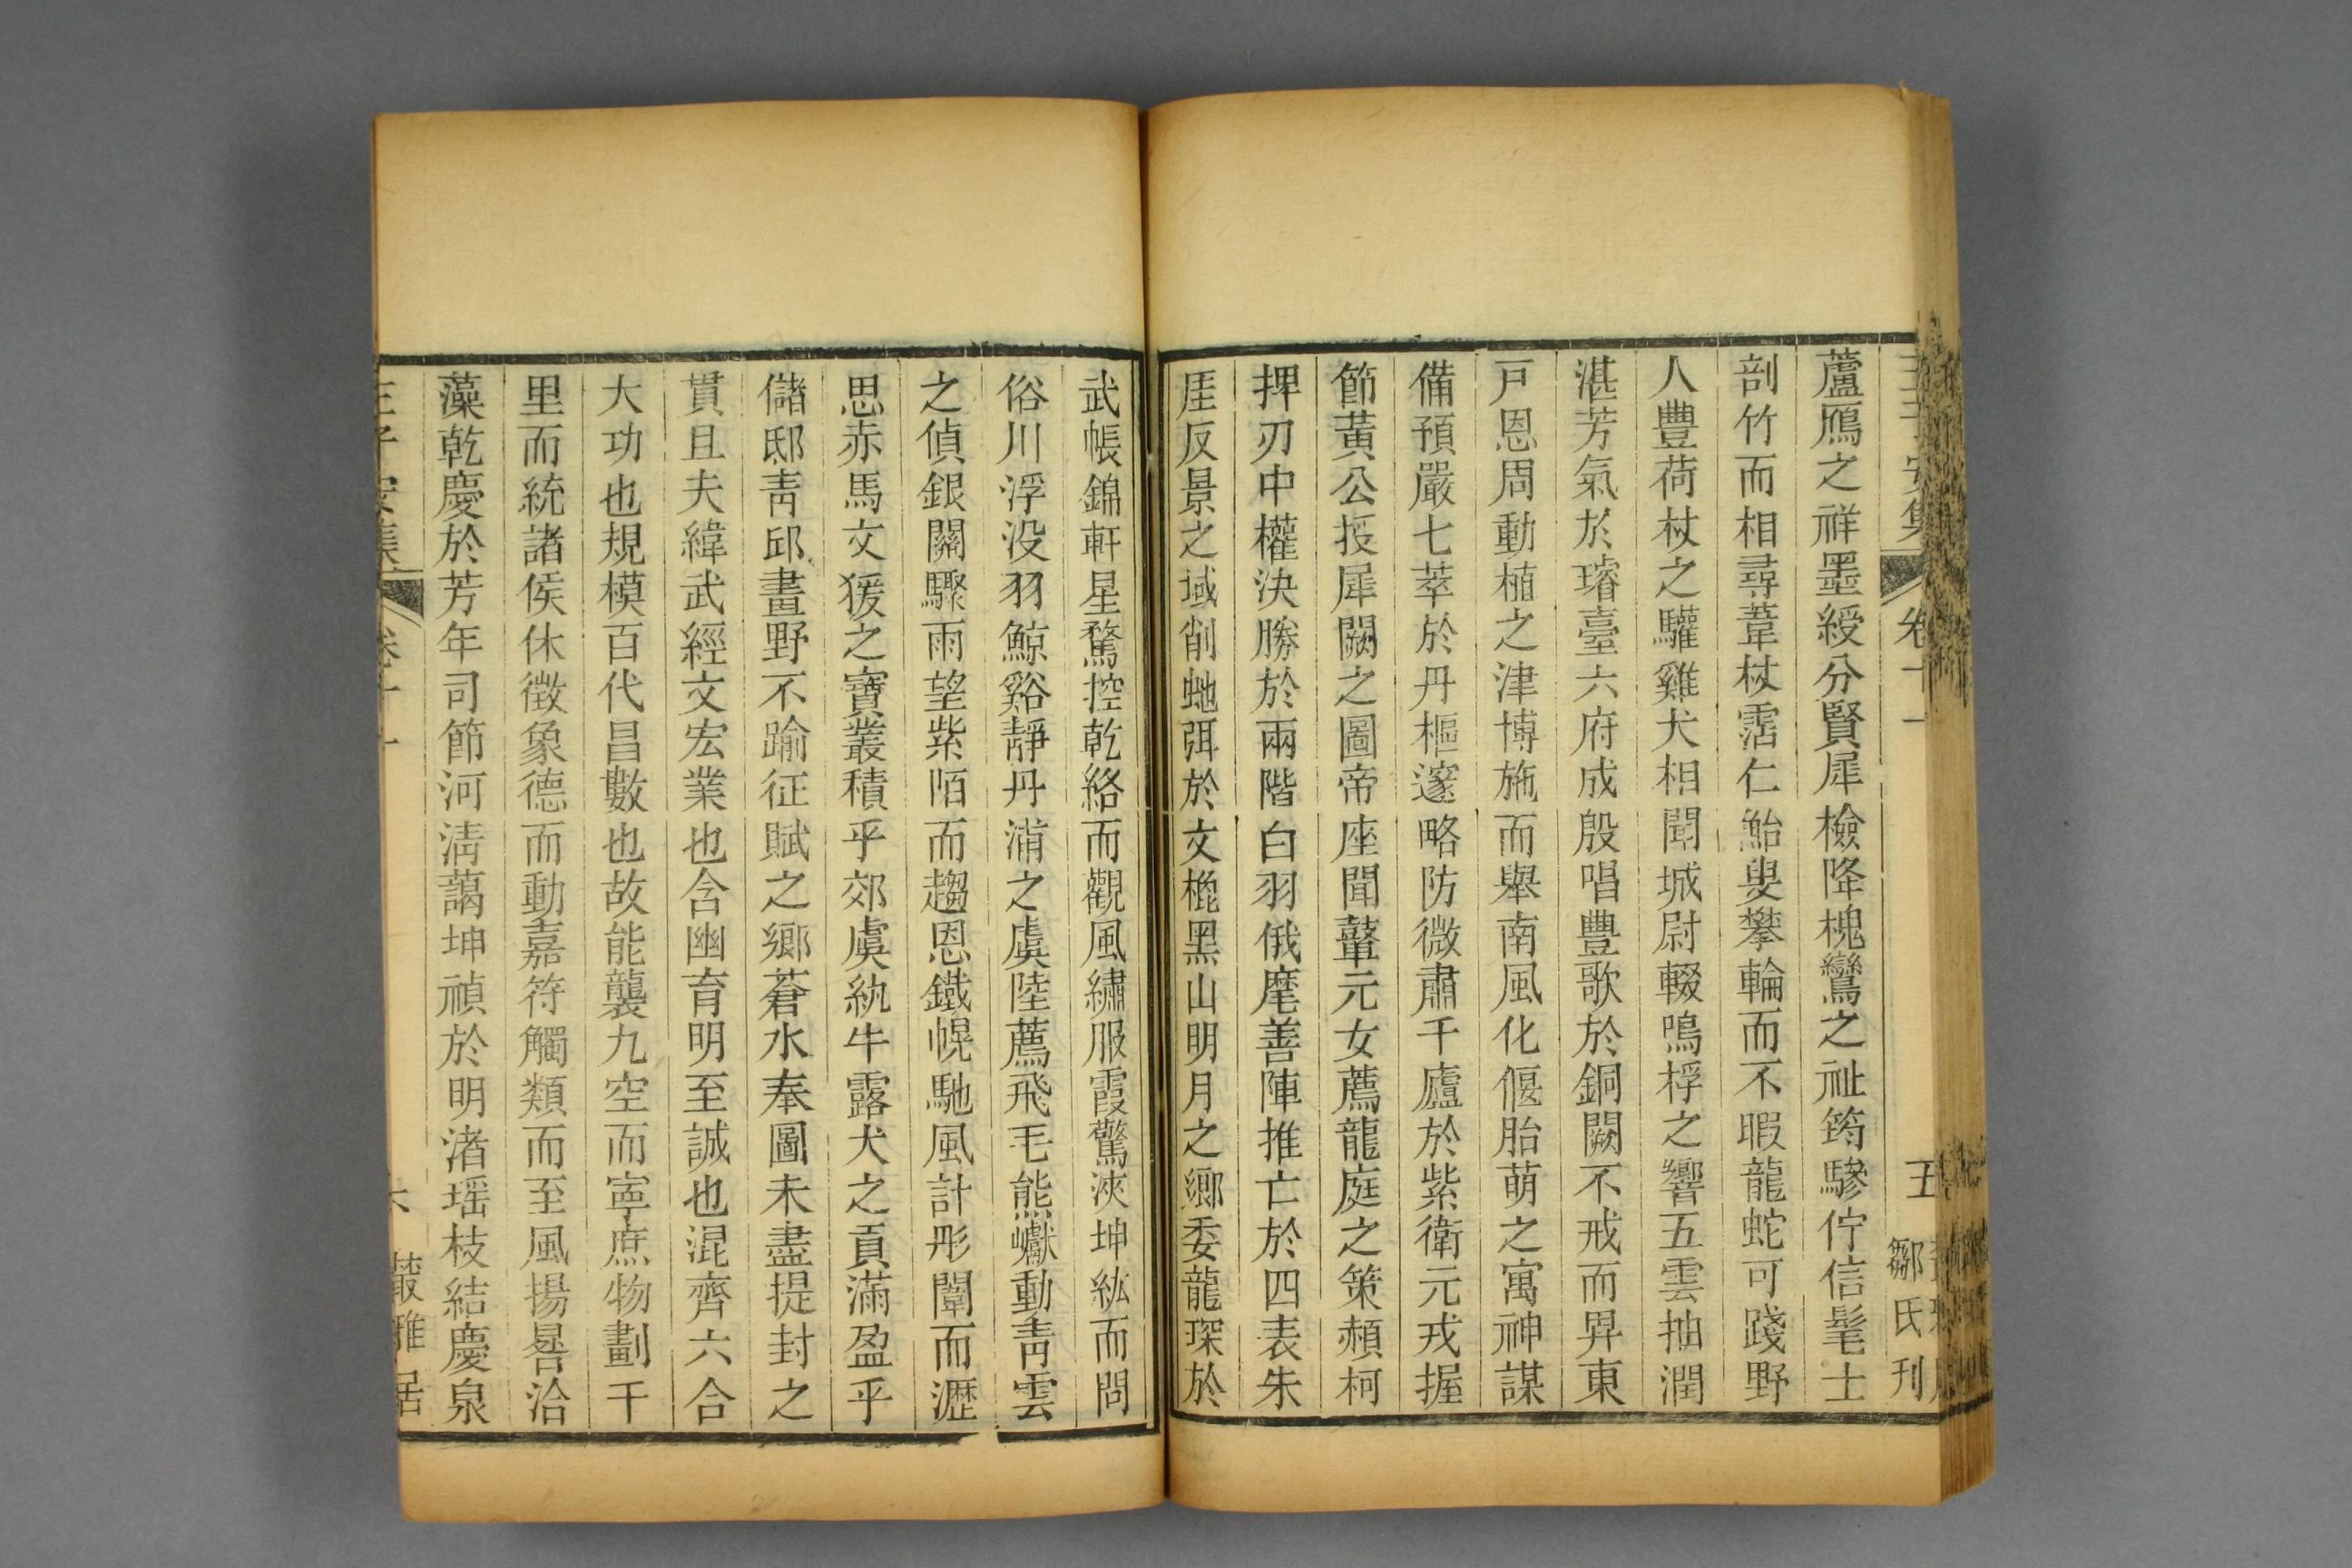 王子安集 卷十一 五 鄒氏刊
蘆鴈之祥墨綬分賢犀檢降槐鸞之祉筠驂佇信髦士
剖竹而相尋葦杖霑仁鮐叟攀輪而不暇龍蛇可踐野
人豐荷杖之驩雞犬相聞城尉輟鳴桴之響五雲抽潤
湛芳氣於璿臺六府成殷唱豐歌於銅闕不戒而昇東
戸恩周動植之津博施而舉南風化偃胎萌之寓神謀
備預嚴七萃於丹樞邃略防微肅千廬於紫衛元戎握
節黃公授犀闕之圖帝座聞鼙元女薦龍庭之策頳柯
押刃中權決勝於兩階白羽俄麾善陣推亡於四表朱
厓反景之域削虵弭於文橈黑山明月之鄉委龍琛於
武帳錦軒星騖控乾絡而觀風繡服霞驚浹坤紘而問
俗川浮没羽鯨谿靜丹浦之虞陸薦飛毛熊巘動青雲
之偵銀關驟雨望紫陌而趨恩鐵幌馳風計彤闈而瀝
思赤馬文猨之寶叢積乎郊虞紈牛露犬之貢滿盈乎
儲邸靑邱畫野不踰征賦之鄉蒼水奉圖未盡提封之
貫且夫緯武經文宏業也含幽育明至誠也混齊六合
大功也規模百代昌數也故能襲九空而寧庶物劃千
里而統諸侯休徵象德而動嘉符觸類而至風揚晷洽
藻乾慶於芳年司節河淸藹坤禎於明渚瑶枝結慶泉
王子安集 卷十一 六 叢雅居